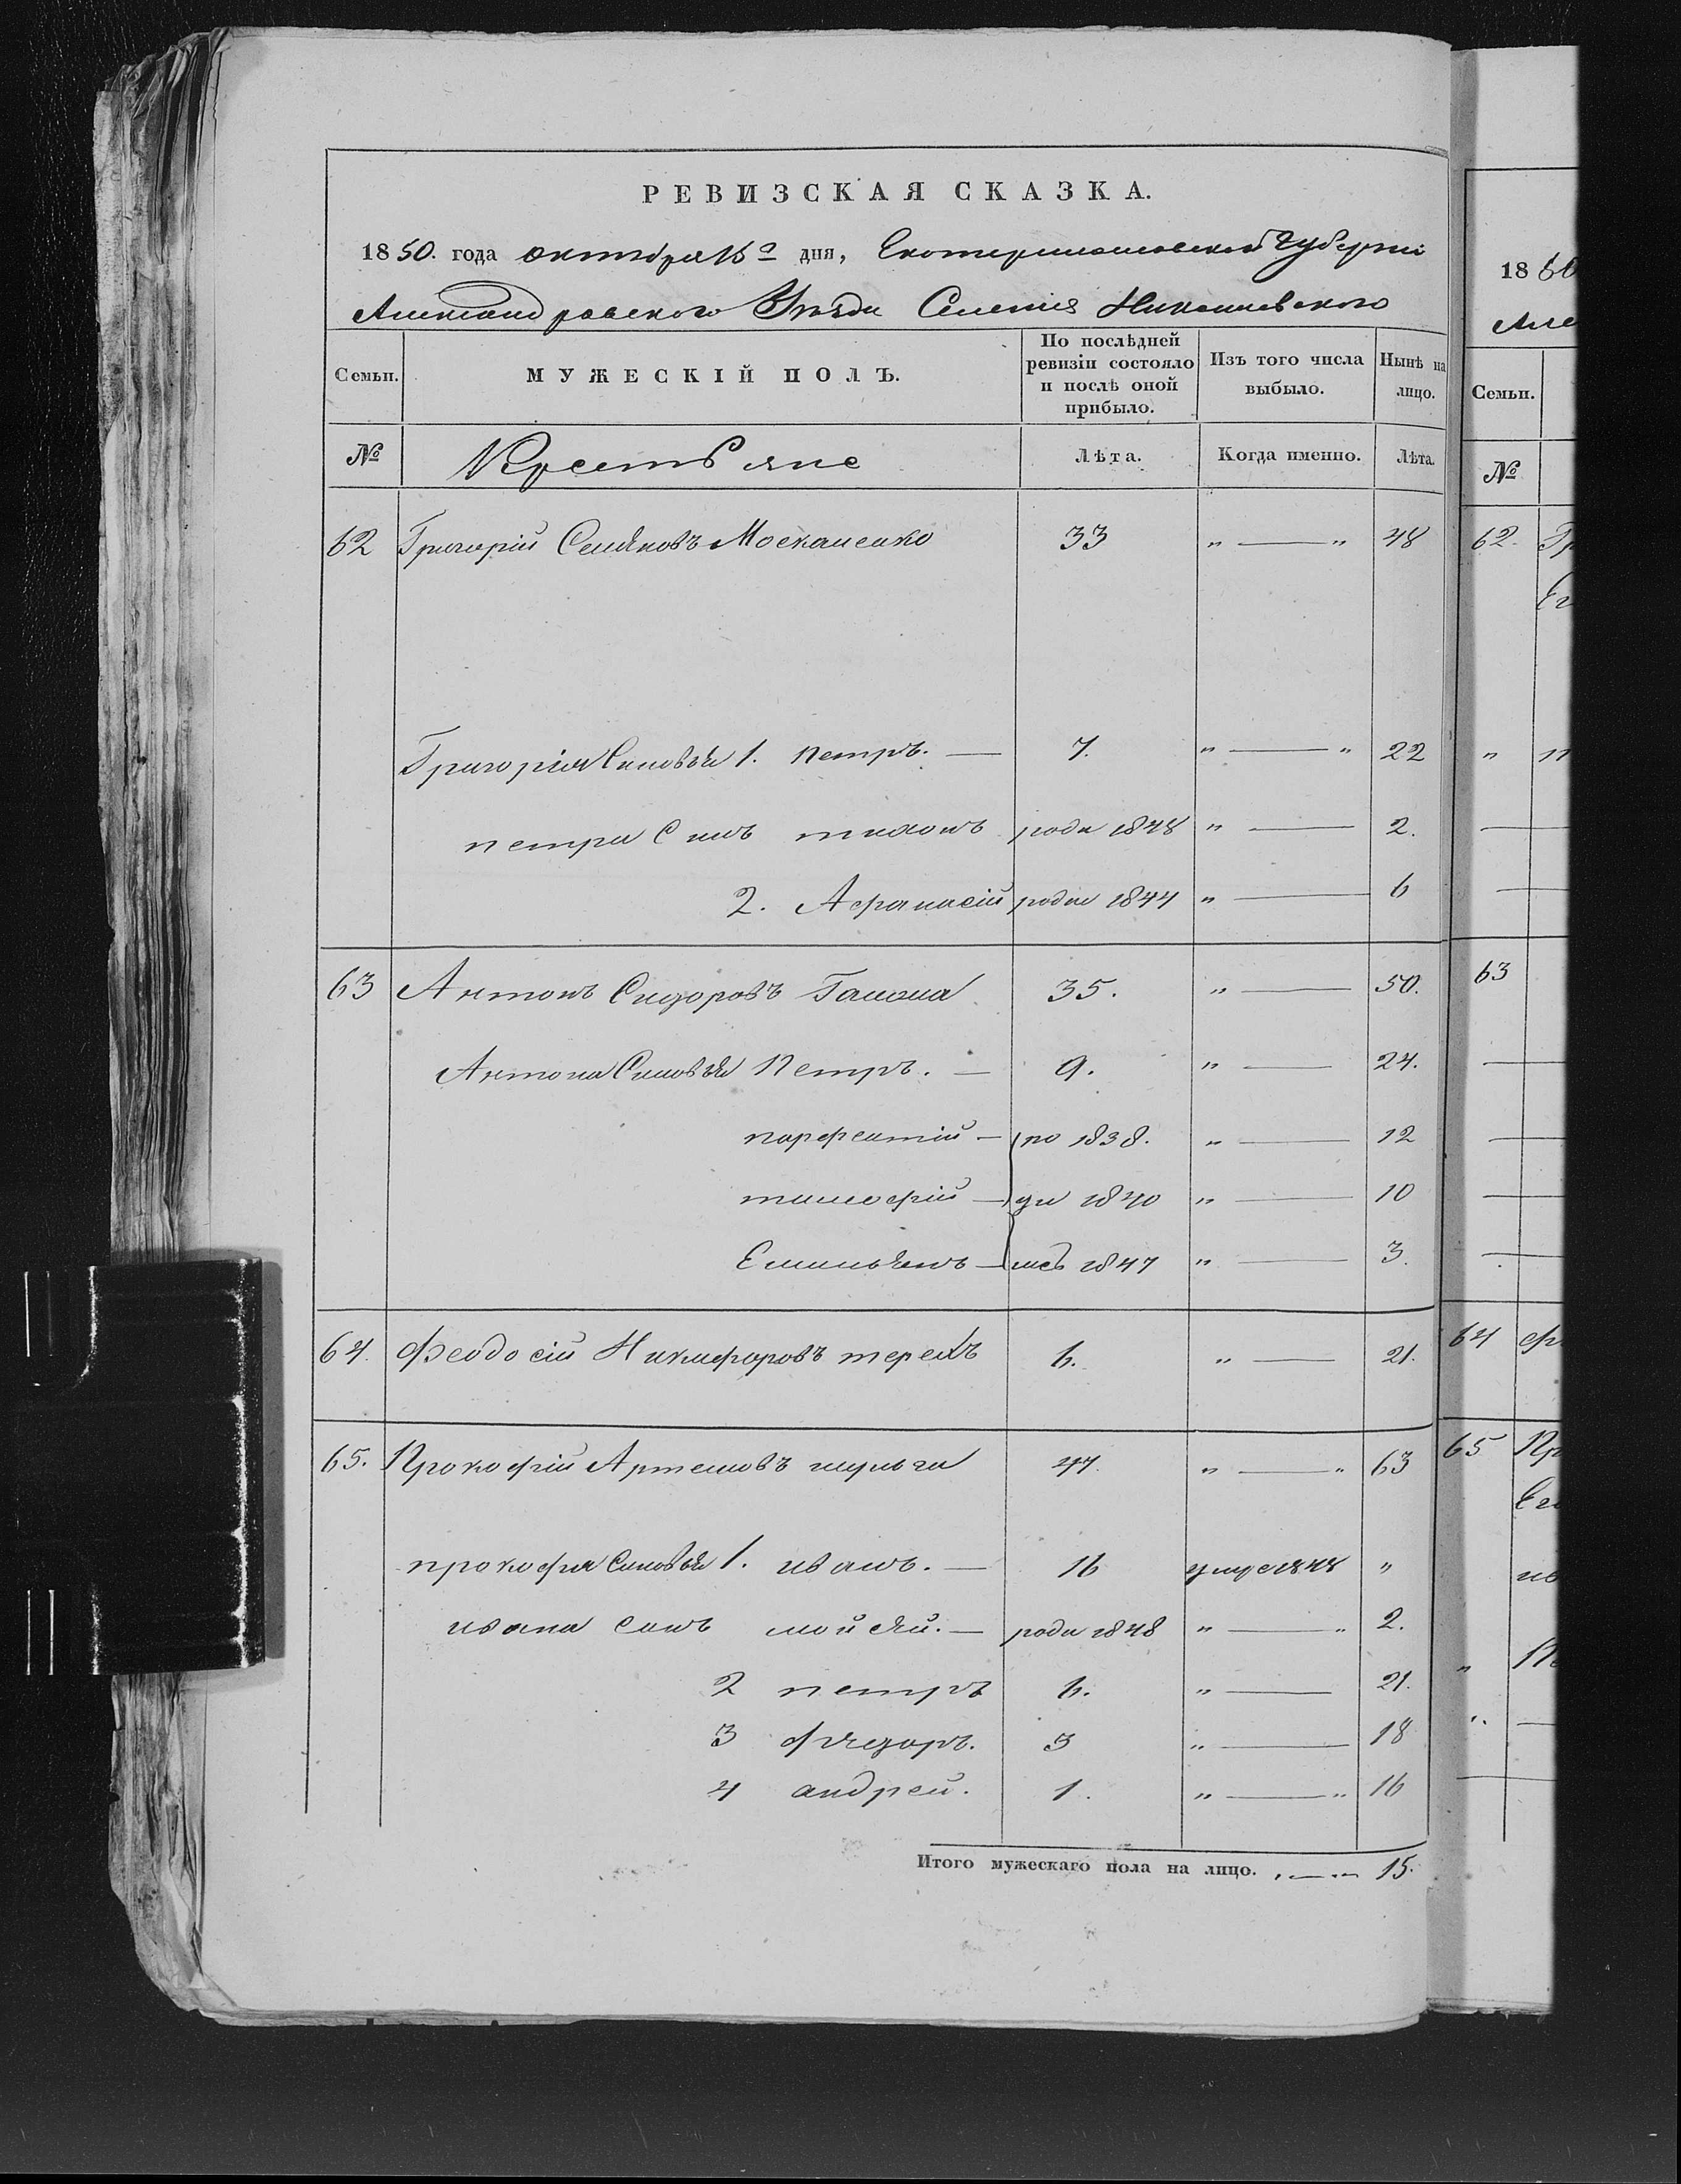 РЕВИЗСКАЯ СКАЗКА.
1850. года октября 16го дня, Екатеринославской Губерніи
Александровского Уезда Селенія Николаевского
Семьи. МУЖЕСКІЙ ПОЛЪ. По послѣдней ревизіи состояло и послѣ оной прибыло. Изъ того числа выбыло. Нынѣ на лицо.
№ Крестьяне Лѣта. Когда именно. Лѣта.
62 Григорій Семяновъ Москаленко 33 „ — „ 48
Григорія Сыновья 1. петръ. — 7. „ — „ 22
петра Сынъ тихонъ роди 1848 „ — 2.
2. Афанасій роди 1844 „ — 6
63 Антонъ Сидоровъ 35. „ — 50.
Антона Сыновья Петръ. — 9. „ — 24.
парфентій — ро 1838. „ — 12
тимофій — ди 1840 „ — 10
Емильянъ — лись 1847 „ — 3.
64. Феодосій Никифоровъ терехъ 6. „ — 21.
65. Прокофій Артемовъ шульга 47. „ — „ 63
прокофія Сыновья 1. иванъ. — 16 умре 1848 „
ивана сынъ мойсяй. — роди 1848 „ — „ 2.
2 петръ 6. „ — 21.
3 фядоръ. 3 „ — 18
4 андрей. 1. „ — „ 16
Итого мужескаго пола на лицо. — 15.
18
Але
Семьи.
№
62. Гр
Ег
„ п
63
64 фе
65 Пр
Ег
ив
„ Пе
„